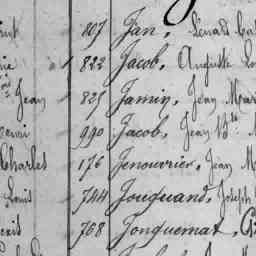 807 Jan, Lénard
ie à 822 Jacob, Auguste
Jean 825 Jamin, Jean Mar
enri 990 Jacob, Jean Bte
Charles 176 Jenouvrier, Jean M
Louis 744 Jouquand, Joseph
768 Jonquemat,